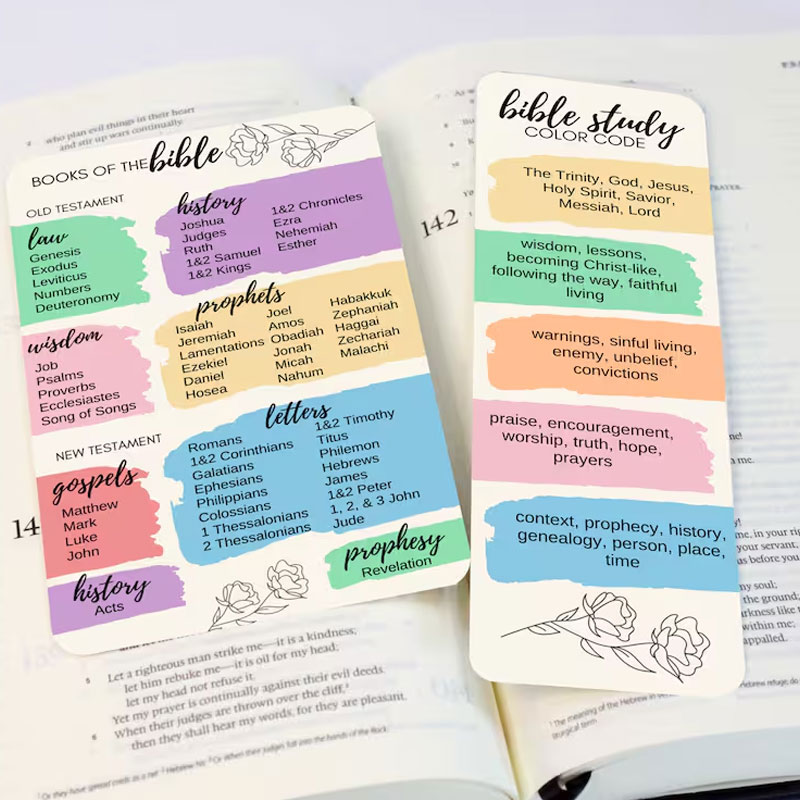 who plan evil things in their heart
and stir up wars continually.
BOOKS OF THE bible
OLD TESTAMENT
law
Genesis
Exodus
Leviticus
Numbers
Deuteronomy
history
Joshua
Judges
Ruth
1&2 Samuel
1&2 Kings
1&2 Chronicles
Ezra
Nehemiah
Esther
wisdom
Job
Psalms
Proverbs
Ecclesiastes
Song of Songs
prophets
Isaiah
Jeremiah
Lamentations
Ezekiel
Daniel
Hosea
Joel
Amos
Obadiah
Jonah
Micah
Nahum
Habakkuk
Zephaniah
Haggai
Zechariah
Malachi
NEW TESTAMENT
gospels
Matthew
Mark
Luke
John
letters
Romans
1&2 Corinthians
Galatians
Ephesians
Philippians
Colossians
1 Thessalonians
2 Thessalonians
1&2 Timothy
Titus
Philemon
Hebrews
James
1&2 Peter
1, 2, & 3 John
Jude
history
Acts
prophesy
Revelation
14
5 Let a righteous man strike me—it is a kindness;
let him rebuke me—it is oil for my head;
let my head not refuse it.
Yet my prayer is continually against their evil deeds.
6 When their judges are thrown over the cliff,
then they shall hear my words, for they are pleasant.
142
bible study
COLOR CODE
The Trinity, God, Jesus,
Holy Spirit, Savior,
Messiah, Lord
wisdom, lessons,
becoming Christ-like,
following the way, faithful
living
warnings, sinful living,
enemy, unbelief,
convictions
praise, encouragement,
worship, truth, hope,
prayers
context, prophecy, history,
genealogy, person, place,
time
me.
my soul;
the ground;
within me;
appalled.